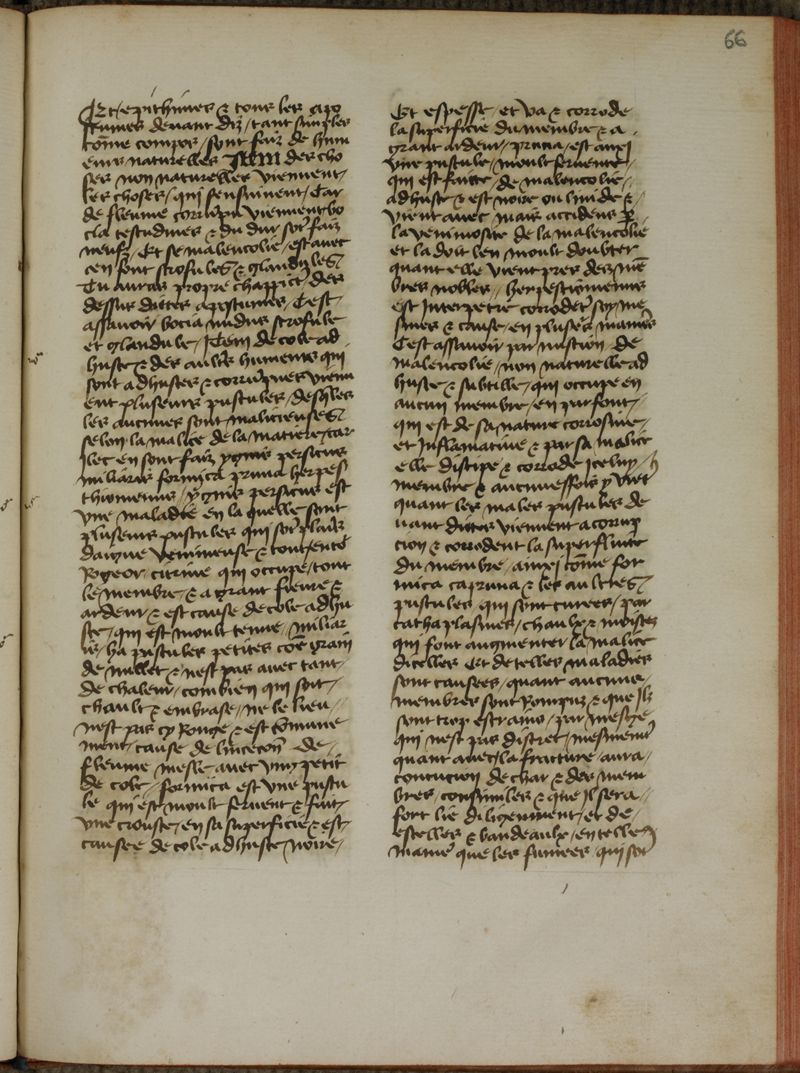 66
Et epithimes & tous les apo
stumes devant diz / tant simples
come compos / sont faiz de hum
eurs naturelles Item des cho
ses non naturelles viennent /
les choses / qui sensuivent / Car
de fleume corrumpu viennent bo
cia testudines & du dur sont faiz
neufz / Et se malencolie / est avec
cen sont scrofules & glandules
Tu auras propre chappitre des
dessus dittes apostumes / Cest
assavoir bocia nudus scrofule
et glandule / Item de cole ad
huste & des aultres humeurs qui
sont adhustes & corrumpues vienn
ent pluseurs pustules / desqlles
les aucunes sont malicieuses
selon la malice de la matiere / car
ilec en sont faiz ygnis persicus
miliaris formica pruna herpes
thiomenus / ygnis persicus est
une maladie en la quelle sont
pluseurs pustules qui sont plains
daigue venimeuse & tout ente
Rogeor citrine qui occupe / tout
le membre & a grant fievre &
ardeur & est cause de cole adhu
ste / qui est moult tenue / miliar
is / ha pustules petites coe grain
de millet & nest pas avec tant
de chaleur / combien qui soit /
chault & embrase / ne le lieu
nest pas cy Rouge & est comune
ment cause de
fleume mesle avec ung petit
de cole / formica est une pustu
le qui est moult fervent & fait /
une crouste / en sa superficie & est /
causee de cole adhuste / noire /
Et espesse / et va & corrode
la superficie du membre & a
grant ardeur / pruna / est aussi
une pustule / moult fervente /
qui est faitte / de malencolie
adhuste & est noire ou livide &
vient avec mais accidens pour
la venimosite de la malencolie
et la doit len moult doubter
quant elle vient pres des me
bres nobles / herpestiomenus
est Interpetre corroder soy me
smes & cause / en pluseurs manieres
Cest assavoir par mistion de
malencolie / non naturelle ad
huste & subtille / qui occupe en
aucun membre / en parfont /
qui est de sa nature corrosive /
et Inflamative & par sa malice
elle dissipe & corrode iceluy
membre & aucuneffois y vient
quant les males pustules de
vant dittes viennent a corrup
cion & corrodent la superfluite
du membre / aussi come for
mica caprina & les aultres
pustules qui sont curees / par
cathaplasmes / chaulx & moistes
qui font augmenter la malice
dicelles Et de telles maladies
sont causees / quant aucuns
membres sont Rompuz & que ilz
sont trop estrains / par mesge
qui nest pas discret / mesmement
quant avec la fracture / aura /
contucion de char & des mem
bres / consimiles & que Il sera
fort lie diligenment / et de
estelles & bandeaulx / en telle
maniere que les fumees qui sont